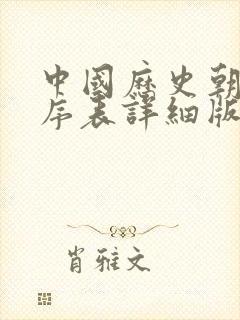 中國歷史朝
序表詳細版
肖雅文